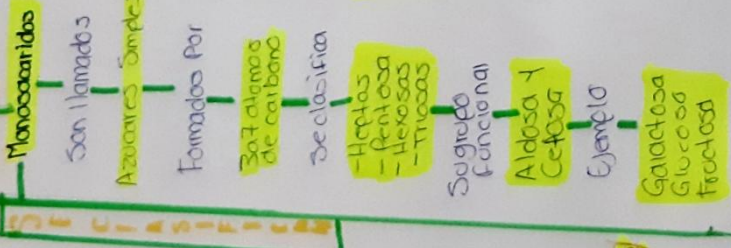 Monosacaridos
Son llamados
Azucares Simples
Formados Por
3a7 atomos
de carbono
Se clasifica
-Heptas
-Pentosa
-Hexosas
-Triosas
Sugrupo
Funcional
Aldosa Y
Cetosa
Ejemplo
Galactosa
Glucosa
Fructosa
SE CLASIFICAN